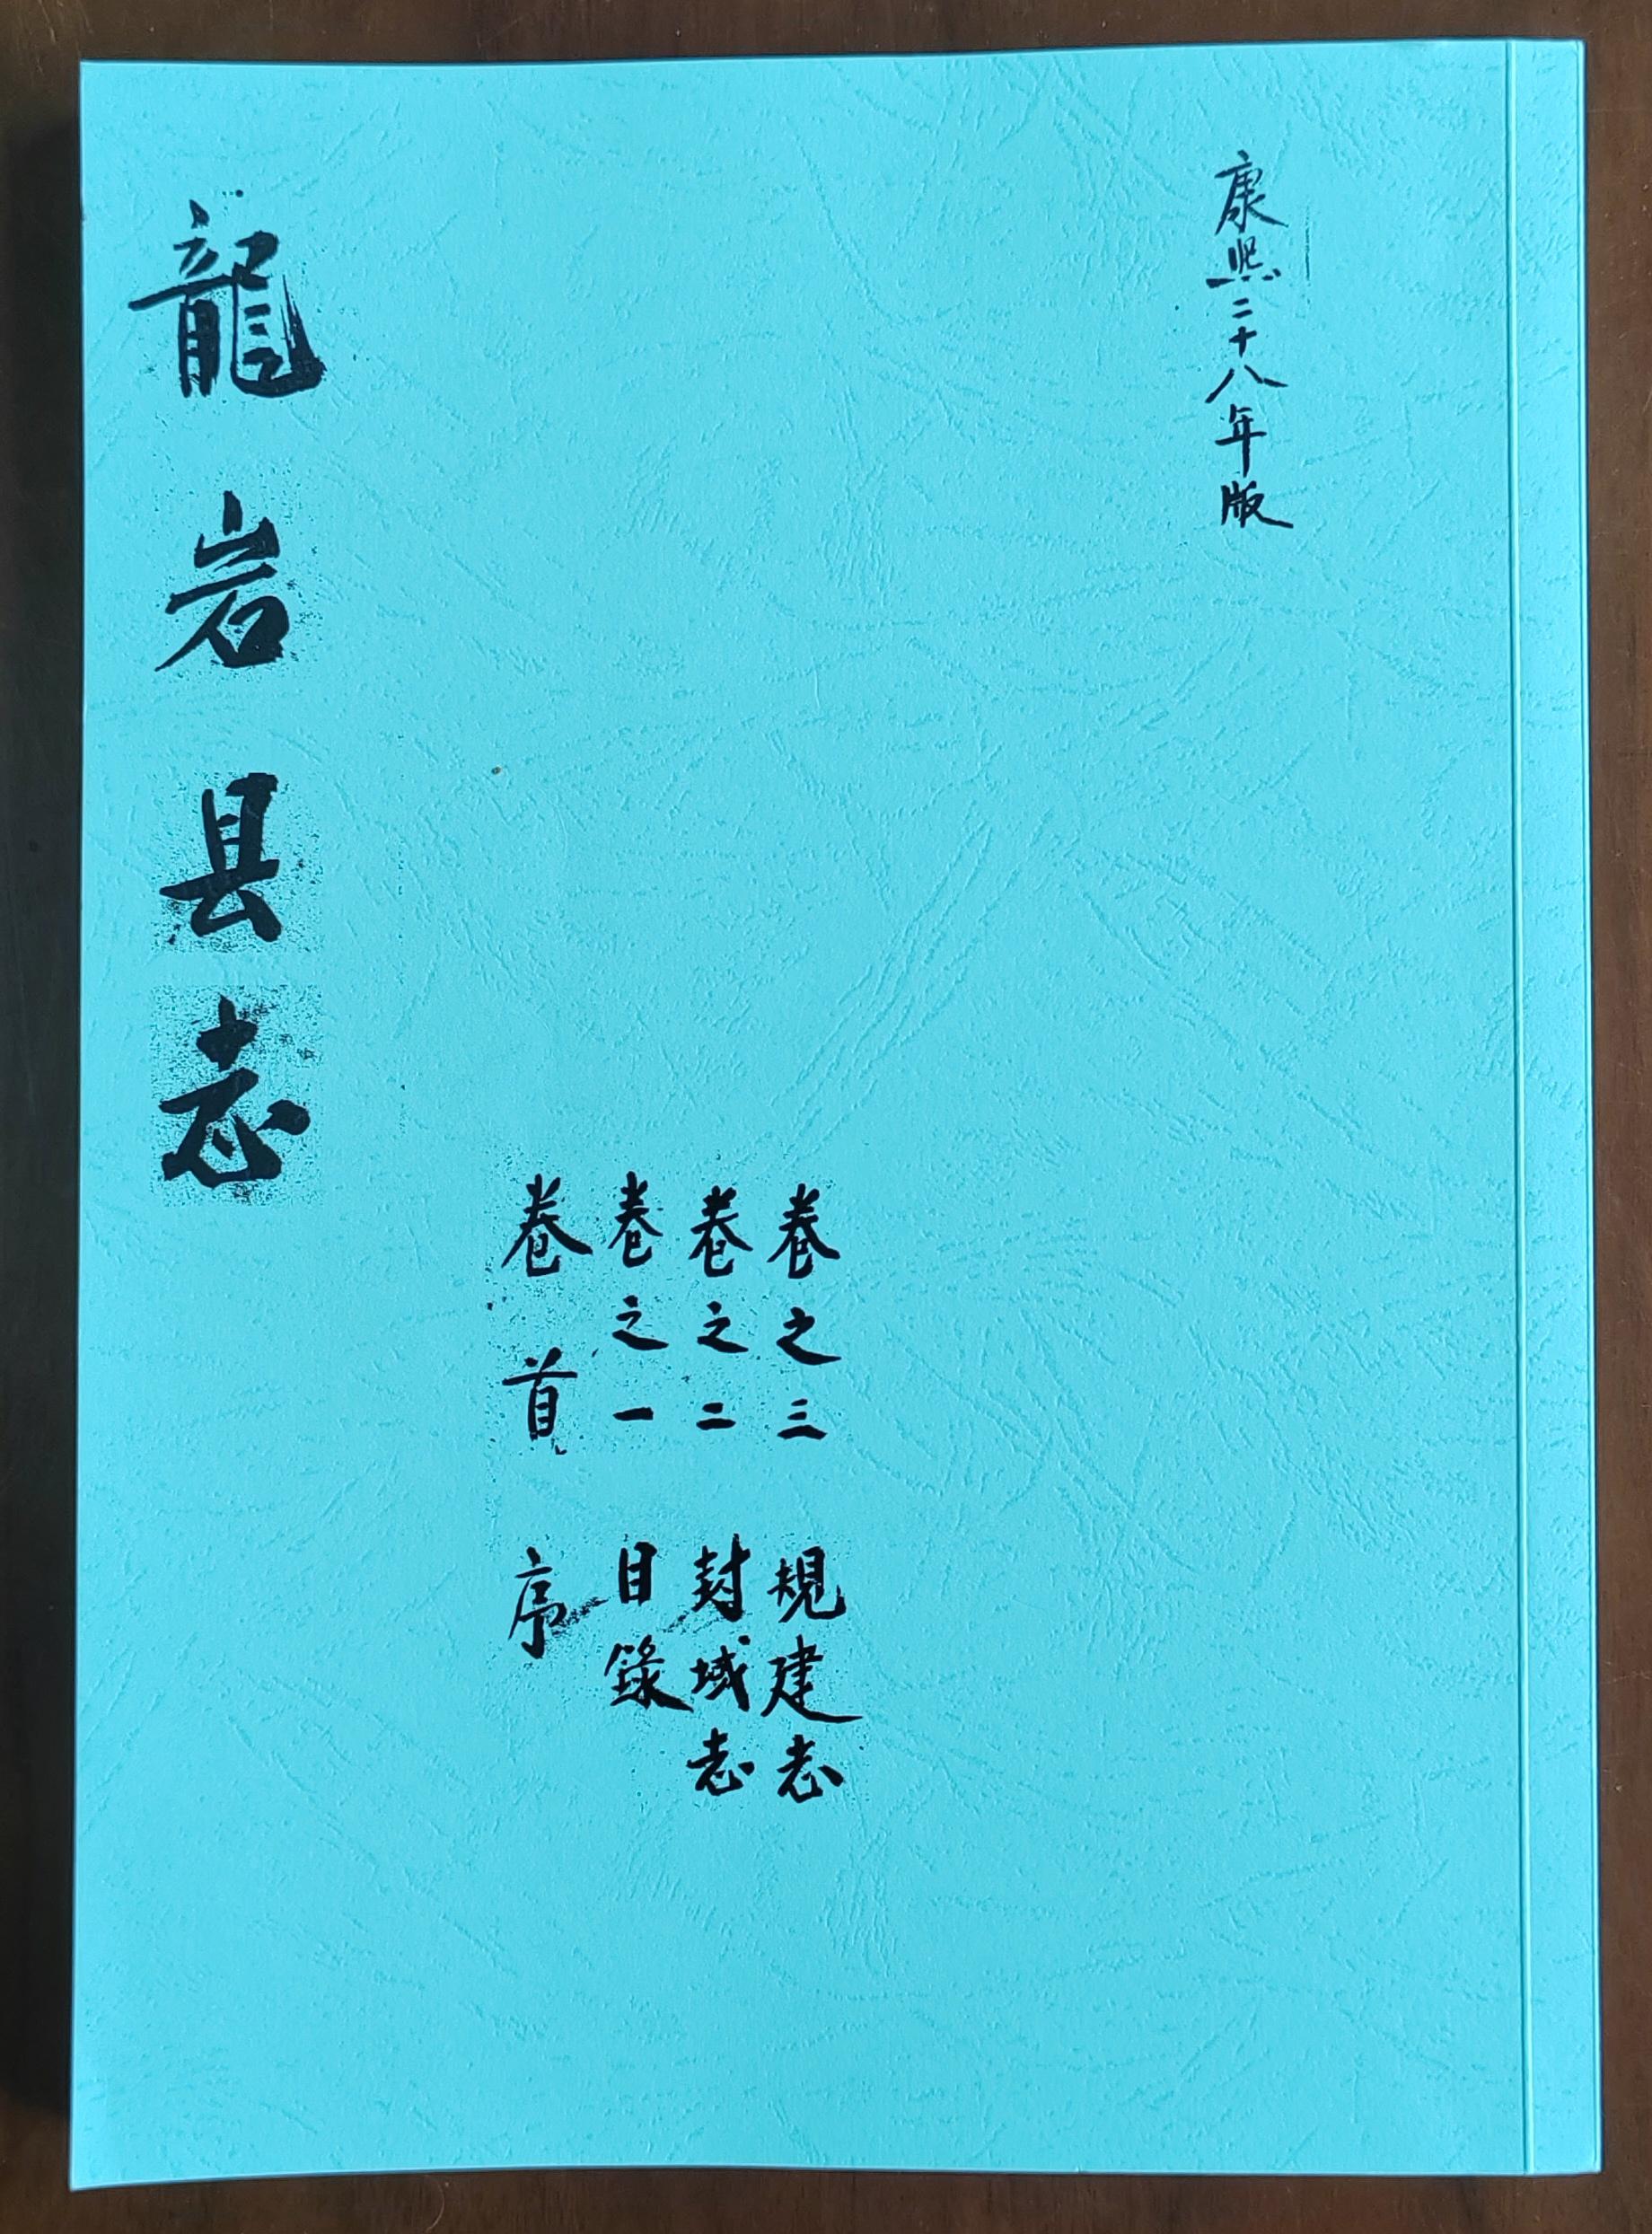 康熙二十八年版
卷之三 規建志
卷之二 封域志
卷之一 目錄
卷首 序
龍岩县志